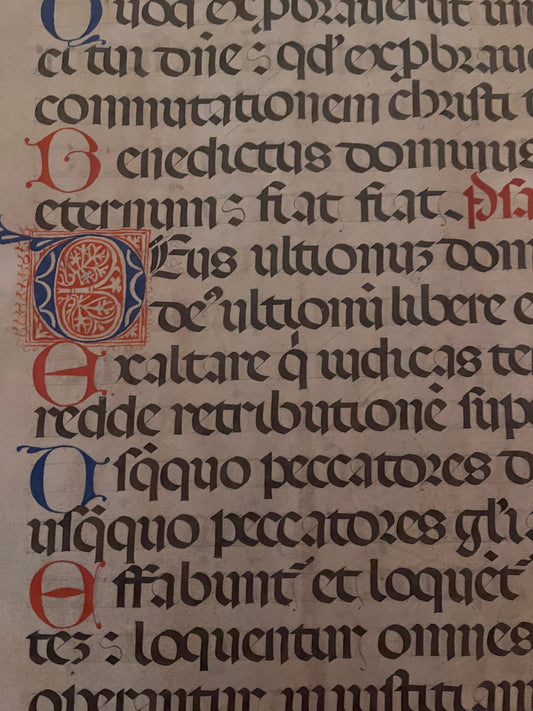 Quod exprobraverūt ini
ci tui dn̄e : qd' exprobrave
commutationem christi t
Benedictus dominus
eternum : fiat fiat. Psa
DEus ultionuʒ dom
de9 ultionū libere e
Exaltare q̇ iudicas te
redde retributionē supe
Usq̄quo peccatores d
usq̄quo peccatores gl'i
Effabunt et loquēt
teʒ : loquentur omnes
operantur iniustitiam